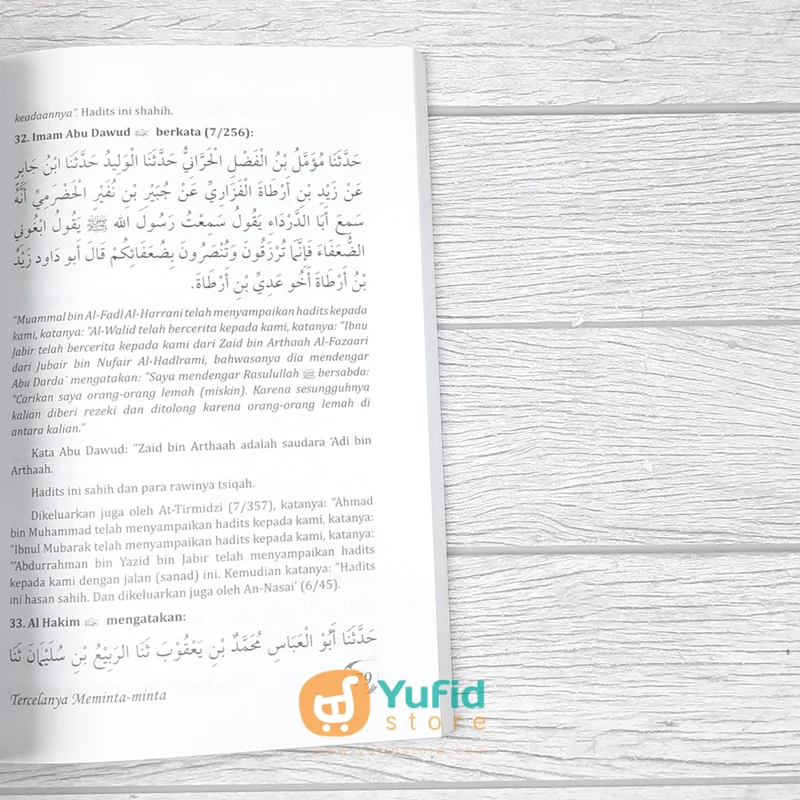 keadaannya". Hadits ini shahih.
32. Imam Abu Dawud berkata (7/256):
حَدَّثَنَا مُؤَمَّلُ بْنُ الْفَضْلِ الْحَرَّانِيُّ حَدَّثَنَا الْوَلِيدُ حَدَّثَنَا ابْنُ جَابِرٍ
عَنْ زَيْدِ بْنِ أَرْطَاةَ الْفَزَارِيِّ عَنْ جُبَيْرِ بْنِ نُفَيْرٍ الْحَضْرَمِيِّ أَنَّهُ
سَمِعَ أَبَا الدَّرْدَاءِ يَقُولُ سَمِعْتُ رَسُولَ الله ﷺ يَقُولُ ابْغُونِي
الضُّعَفَاءَ فَإِنَّمَا تُرْزَقُونَ وَتُنْصَرُونَ بِضُعَفَائِكُمْ قَالَ أَبو دَاود زَيْدُ
بْنُ أَرْطَاةَ أَخُو عَدِيِّ بْنِ أَرْطَاةَ.
"Muammal bin Al-Fadl Al-Harrani telah menyampaikan hadits kepada
kami, katanya: "Al-Walid telah bercerita kepada kami, katanya: "Ibnu
Jabir telah bercerita kepada kami dari Zaid bin Arthaah Al-Fazaari
dari Jubair bin Nufair Al-Hadlrami, bahwasanya dia mendengar
Abu Darda` mengatakan: "Saya mendengar Rasulullah ﷺ bersabda:
"Carikan saya orang-orang lemah (miskin). Karena sesungguhnya
kalian diberi rezeki dan ditolong karena orang-orang lemah di
antara kalian."
Kata Abu Dawud: "Zaid bin Arthaah adalah saudara 'Adi bin
Arthaah.
Hadits ini sahih dan para rawinya tsiqah.
Dikeluarkan juga oleh At-Tirmidzi (7/357), katanya: "Ahmad
bin Muhammad telah menyampaikan hadits kepada kami, katanya:
"Ibnul Mubarak telah menyampaikan hadits kepada kami, katanya:
"'Abdurrahman bin Yazid bin Jabir telah menyampaikan hadits
kepada kami dengan jalan (sanad) ini. Kemudian katanya: "Hadits
ini hasan sahih. Dan dikeluarkan juga oleh An-Nasai' (6/45).
33. Al Hakim mengatakan:
حَدَّثَنَا أَبُوْ الْعَبَاسِ مُحَمَّدٌ بْنِ يَعْقُوْبَ ثَنَا الرَبِيْعُ بْنِ سُلَيْمَانَ ثَنَا
Tercelanya Meminta-minta
Yufid
store
www.yufidstore.com